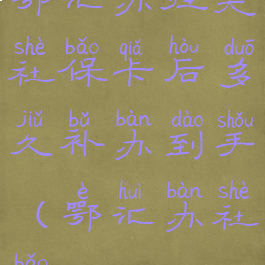 shè bǎo qiǎ hòu duō
社保卡后多
jiǔ bǔ bàn dào shǒu
久补办到手
è huì bàn shè
（鄂汇办社
bǎo